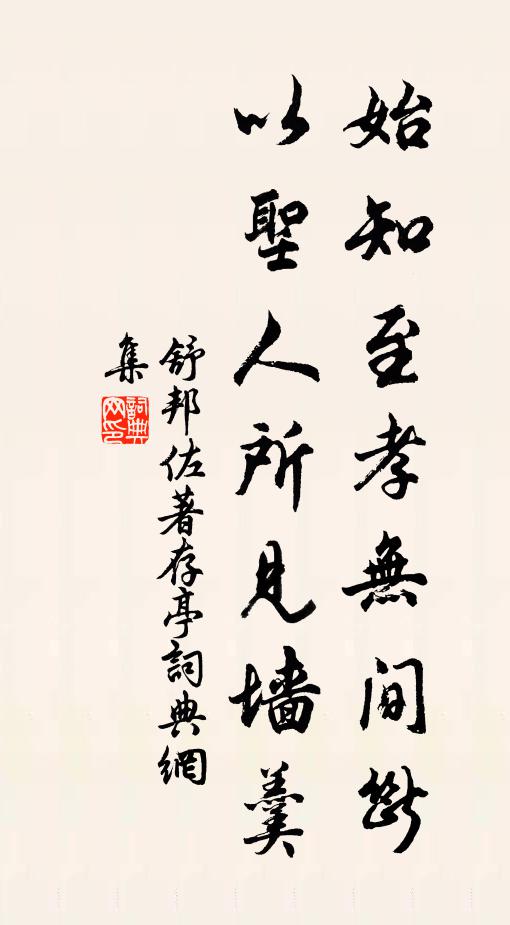 始知至孝無间斷
以聖人所見墙羹
舒邦佐著存亭詞典網
集
詞典網印